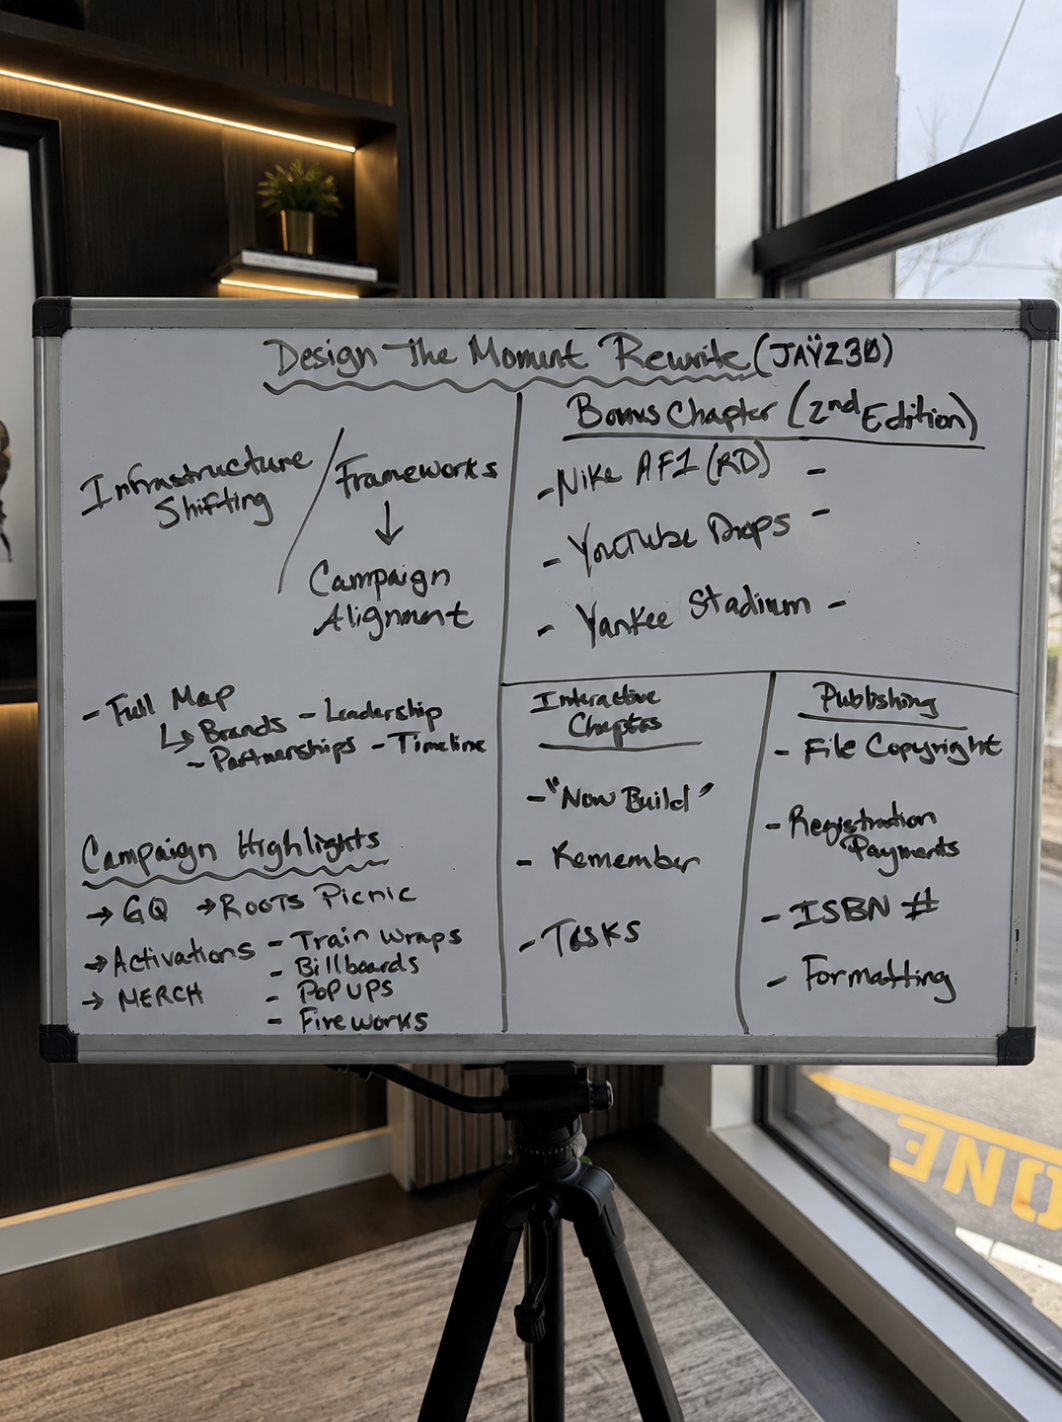 Design The Moment Rewrite (JAŸZ30)
Infrastructure / Frameworks
Shifting
↓
Campaign
Alignment
- Full Map
↳ Brands - Leadership
- Partnerships - Timeline
Campaign Highlights
→ GQ → ROOTS Picnic
→ Activations - Train wraps
- Billboards
→ MERCH - POP UPS
- Fireworks
Bonus Chapter (2nd Edition)
- Nike AF1 (RD) -
- YouTube Drops -
- Yankee Stadium -
Interactive
Chapters
- "Now Build"
- Remember
- Tasks
Publishing
- File Copyright
- Registration
Payments
- ISBN #
- Formatting
ONE